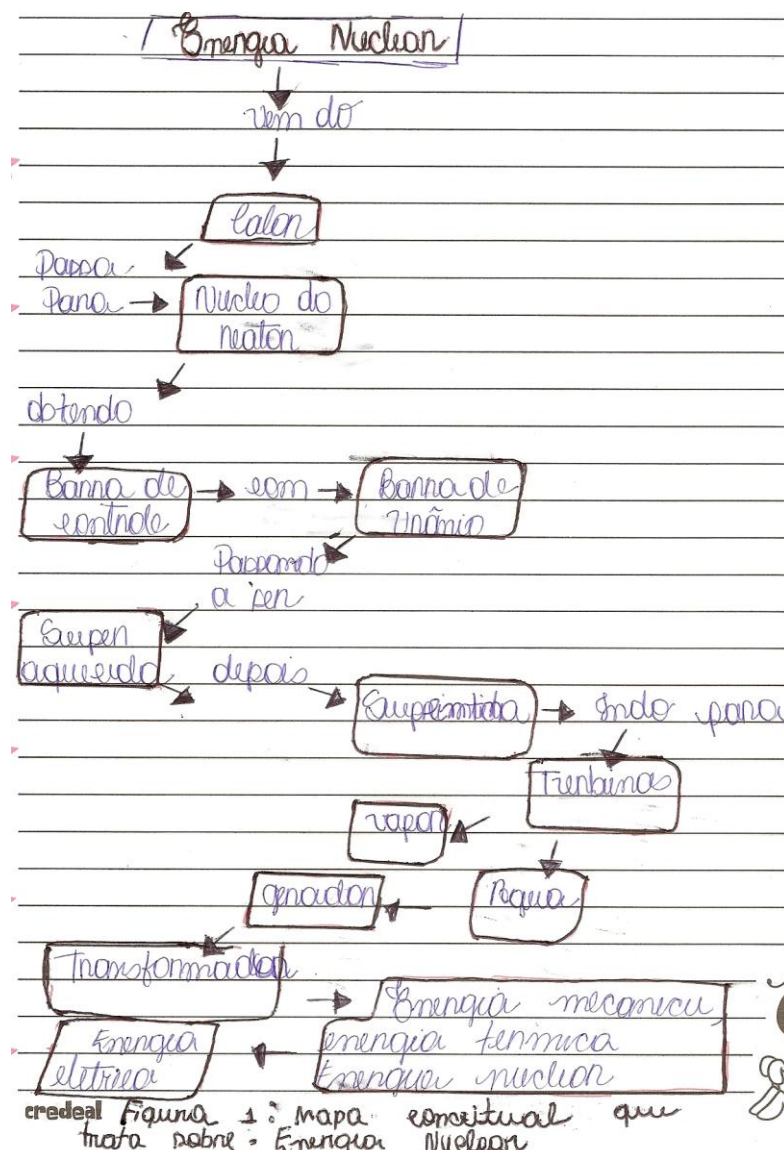 Energia Nuclear
Vem do
Calor
Passa
Para
Nucleo do
reator
obtendo
Barra de
controle
com
Barra de
Urânio
Passando
a ser
Super
aquecido
depois
Indo para
Turbinas
vapor
Agua
gerador
Transformador
Energia mecanica,
energia termica
Energia nuclear
Energia
eletrica
credeal Figura 1: Mapa conceitual que
trata sobre: Energia Nuclear